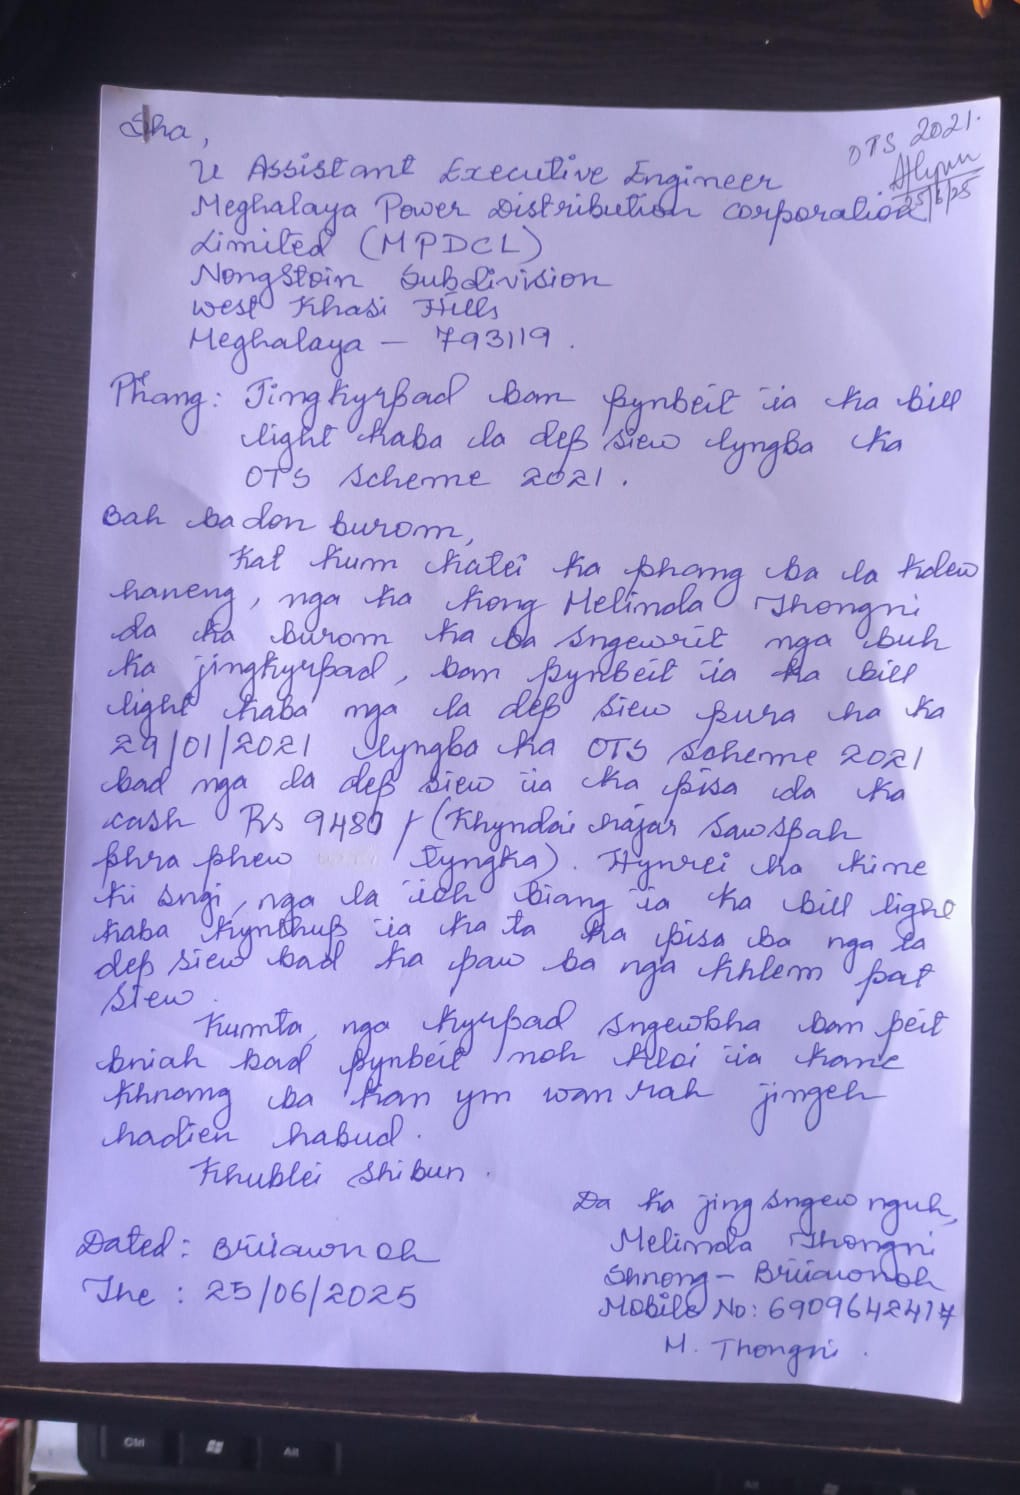 Sha,
OTS 2021.
25/6/25
U Assistant Executive Engineer
Meghalaya Power Distribution Corporation
Limited (MPDCL)
Nongstoin Subdivision
West Khasi Hills
Meghalaya - 793119.
Phang: Jingkyrpad ban pynbeit ïa ka bill
light kaba la dep siew lyngba ka
OTS Scheme 2021.
Bah badon burom,
Kat kum katei ka phang ba la kdew
haneng, nga ka kong Melinda Thongni
da ka burom ka ba sngewrit nga buh
ka jingkyrpad, ban pynbeit ïa ka bill
light kaba nga la dep siew pura ha ka
29/01/2021 lyngba ka OTS Scheme 2021
bad nga la dep siew ïa ka pisa da ka
cash Rs 9480/- (Khyndai hajar sawspah
phra phew tyngka). Hynrei ha kine
ki sngi, nga la ïoh biang ïa ka bill light
kaba kynthup ïa ka ta ka pisa ba nga la
dep siew bad ka paw ba nga khlem pat
siew.
Kumta, nga kyrpad sngewbha ban peit
bniah bad pynbeit noh kloi ïa kane
khnang ba kan ym wan rah jingeh
hadien habud.
Khublei Shibun.
Da ka jingsngew nguh,
Dated: Briiawnoh
Melinda Thongni
The: 25/06/2025
Shnong - Briiawnoh
Mobile No: 6909642417
M. Thongni.